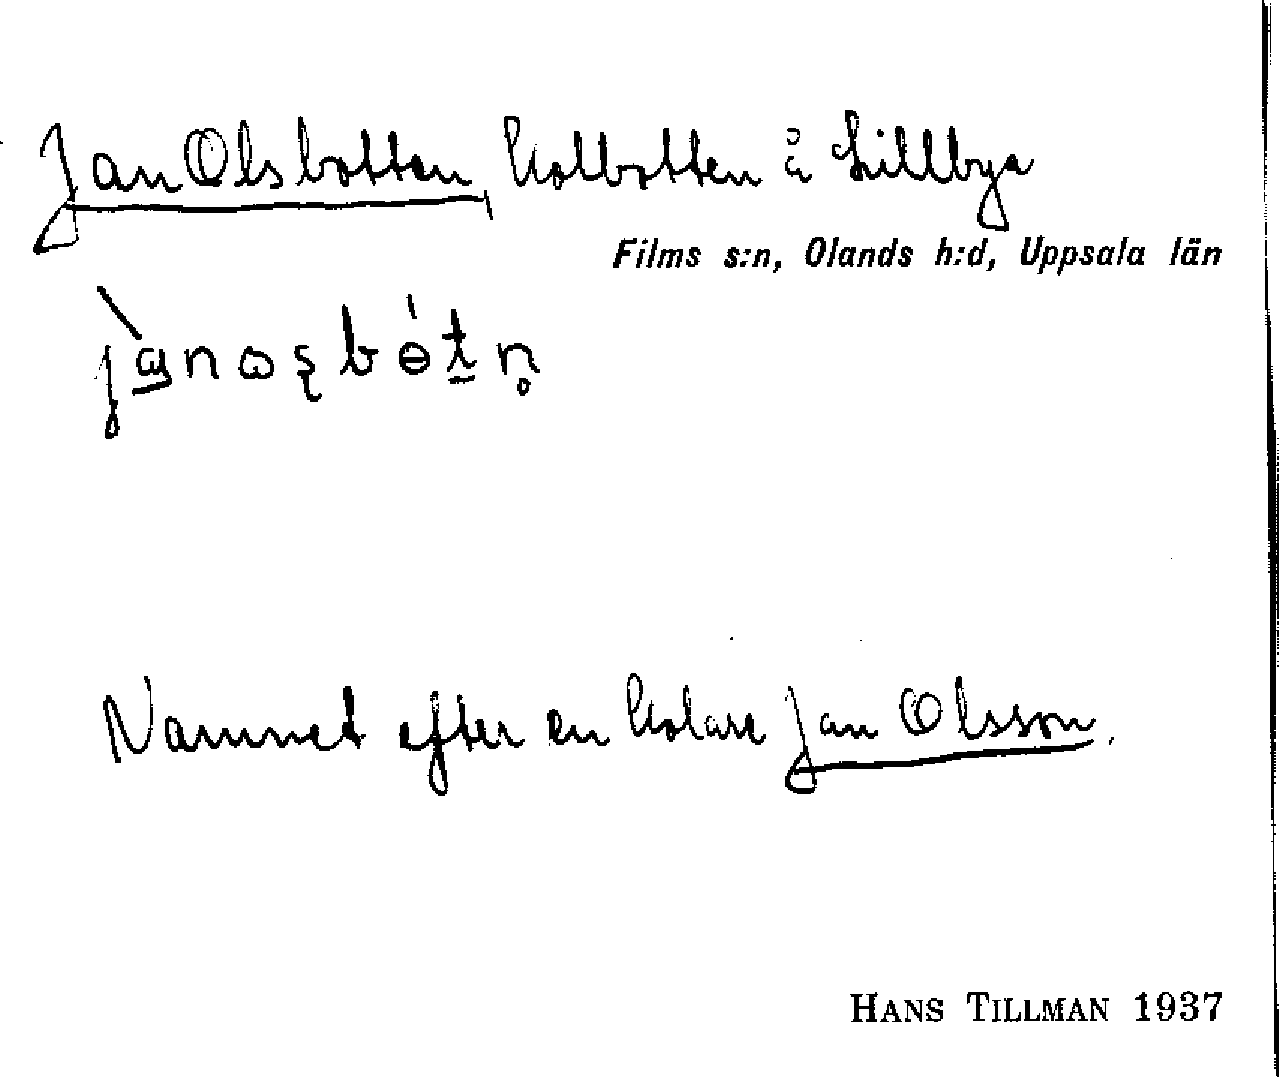 Jan Olsbotten, kolbotten å Lillbya
Films s:n, Olands h:d, Uppsala län
Namnet efter en kolare Jan Olsson.
HANS TILLMAN 1937